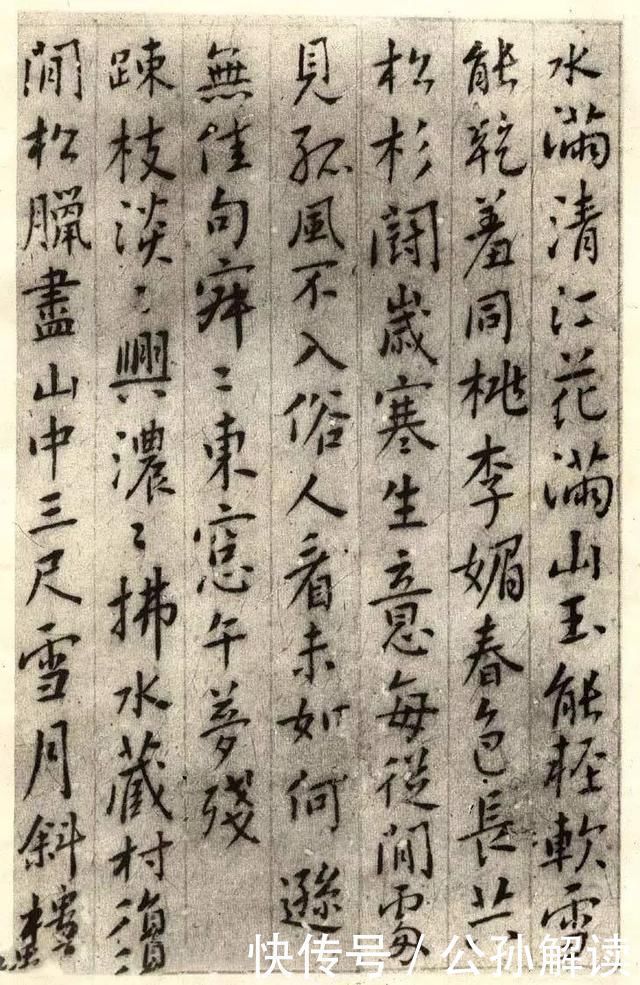 水滿清江花滿山玉能輕軟雪
能乾羞同桃李媚春色長共
松杉鬪歲寒生意每從閒處
見孤風不入俗人看未如何遜
無佳句寂〻東窓午夢殘
踈枝淡〻興濃〻拂水藏村
閒松臘盡山中三尺雪月斜樓
快传号 / 公孙解读